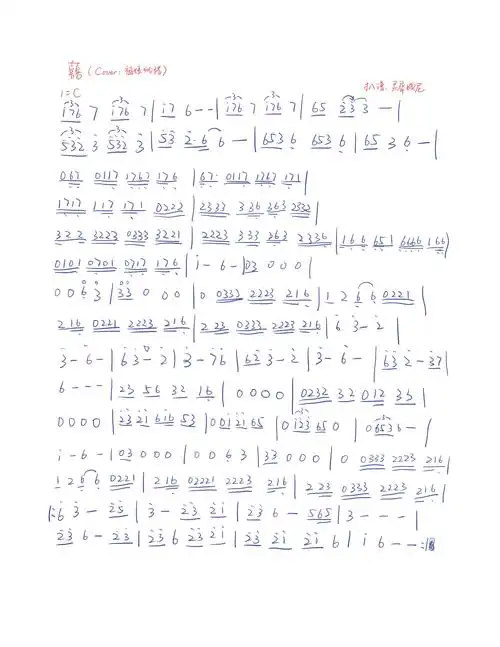 囍 (Cover:
扒谱:
1=C
i76 7 i76 7 | i7 6 - - | i76 i76 7 | 65 233 - |
532 3 532 3 | 53 2·6 6 - | 6536 6536 | 65 3 6 - |
067 0117 1767 176 | 67· 0117 1767 171 |
1717 117 171 0223 | 2333 336 363 2532 |
322 3223 0333 3221 | 2223 333 363 2336 | 166 651 6466 166 |
0101 0701 0717 176 | i - 6 - | 03 0 0 0 |
0 0 6 3 | 33 0 0 0 | 0 0333 2223 216 | 1 2 6 6 0221 |
216 0221 2223 216 | 223 0333 2223 216 | 6 3 - 2 |
3 - 6 - | 63 - 2 | 3 - 76 | 62 3 - 2 | 3 - 6 - | 63 2 - 37 |
6 - - - | 23 56 32 16 | 0 0 0 0 | 0232 32 012 35 |
0 0 0 0 | 23 21 616 53 | 0 0 1 21 65 | 0123 65 0 | 0653 6 - |
i - 6 - | 03 0 0 0 | 0 0 6 3 | 33 0 0 0 | 0 0333 2223 216 |
1 2 6 6 0221 | 216 02221 2223 216 | 223 0333 2223 216 |
|: 6 3 - 25 | 3 - 23 21 | 23 6 - 565 | 3 - - - |
23 6 - 23 | 23 6 23 21 | 23 21 21 6 | i 6 - - :||